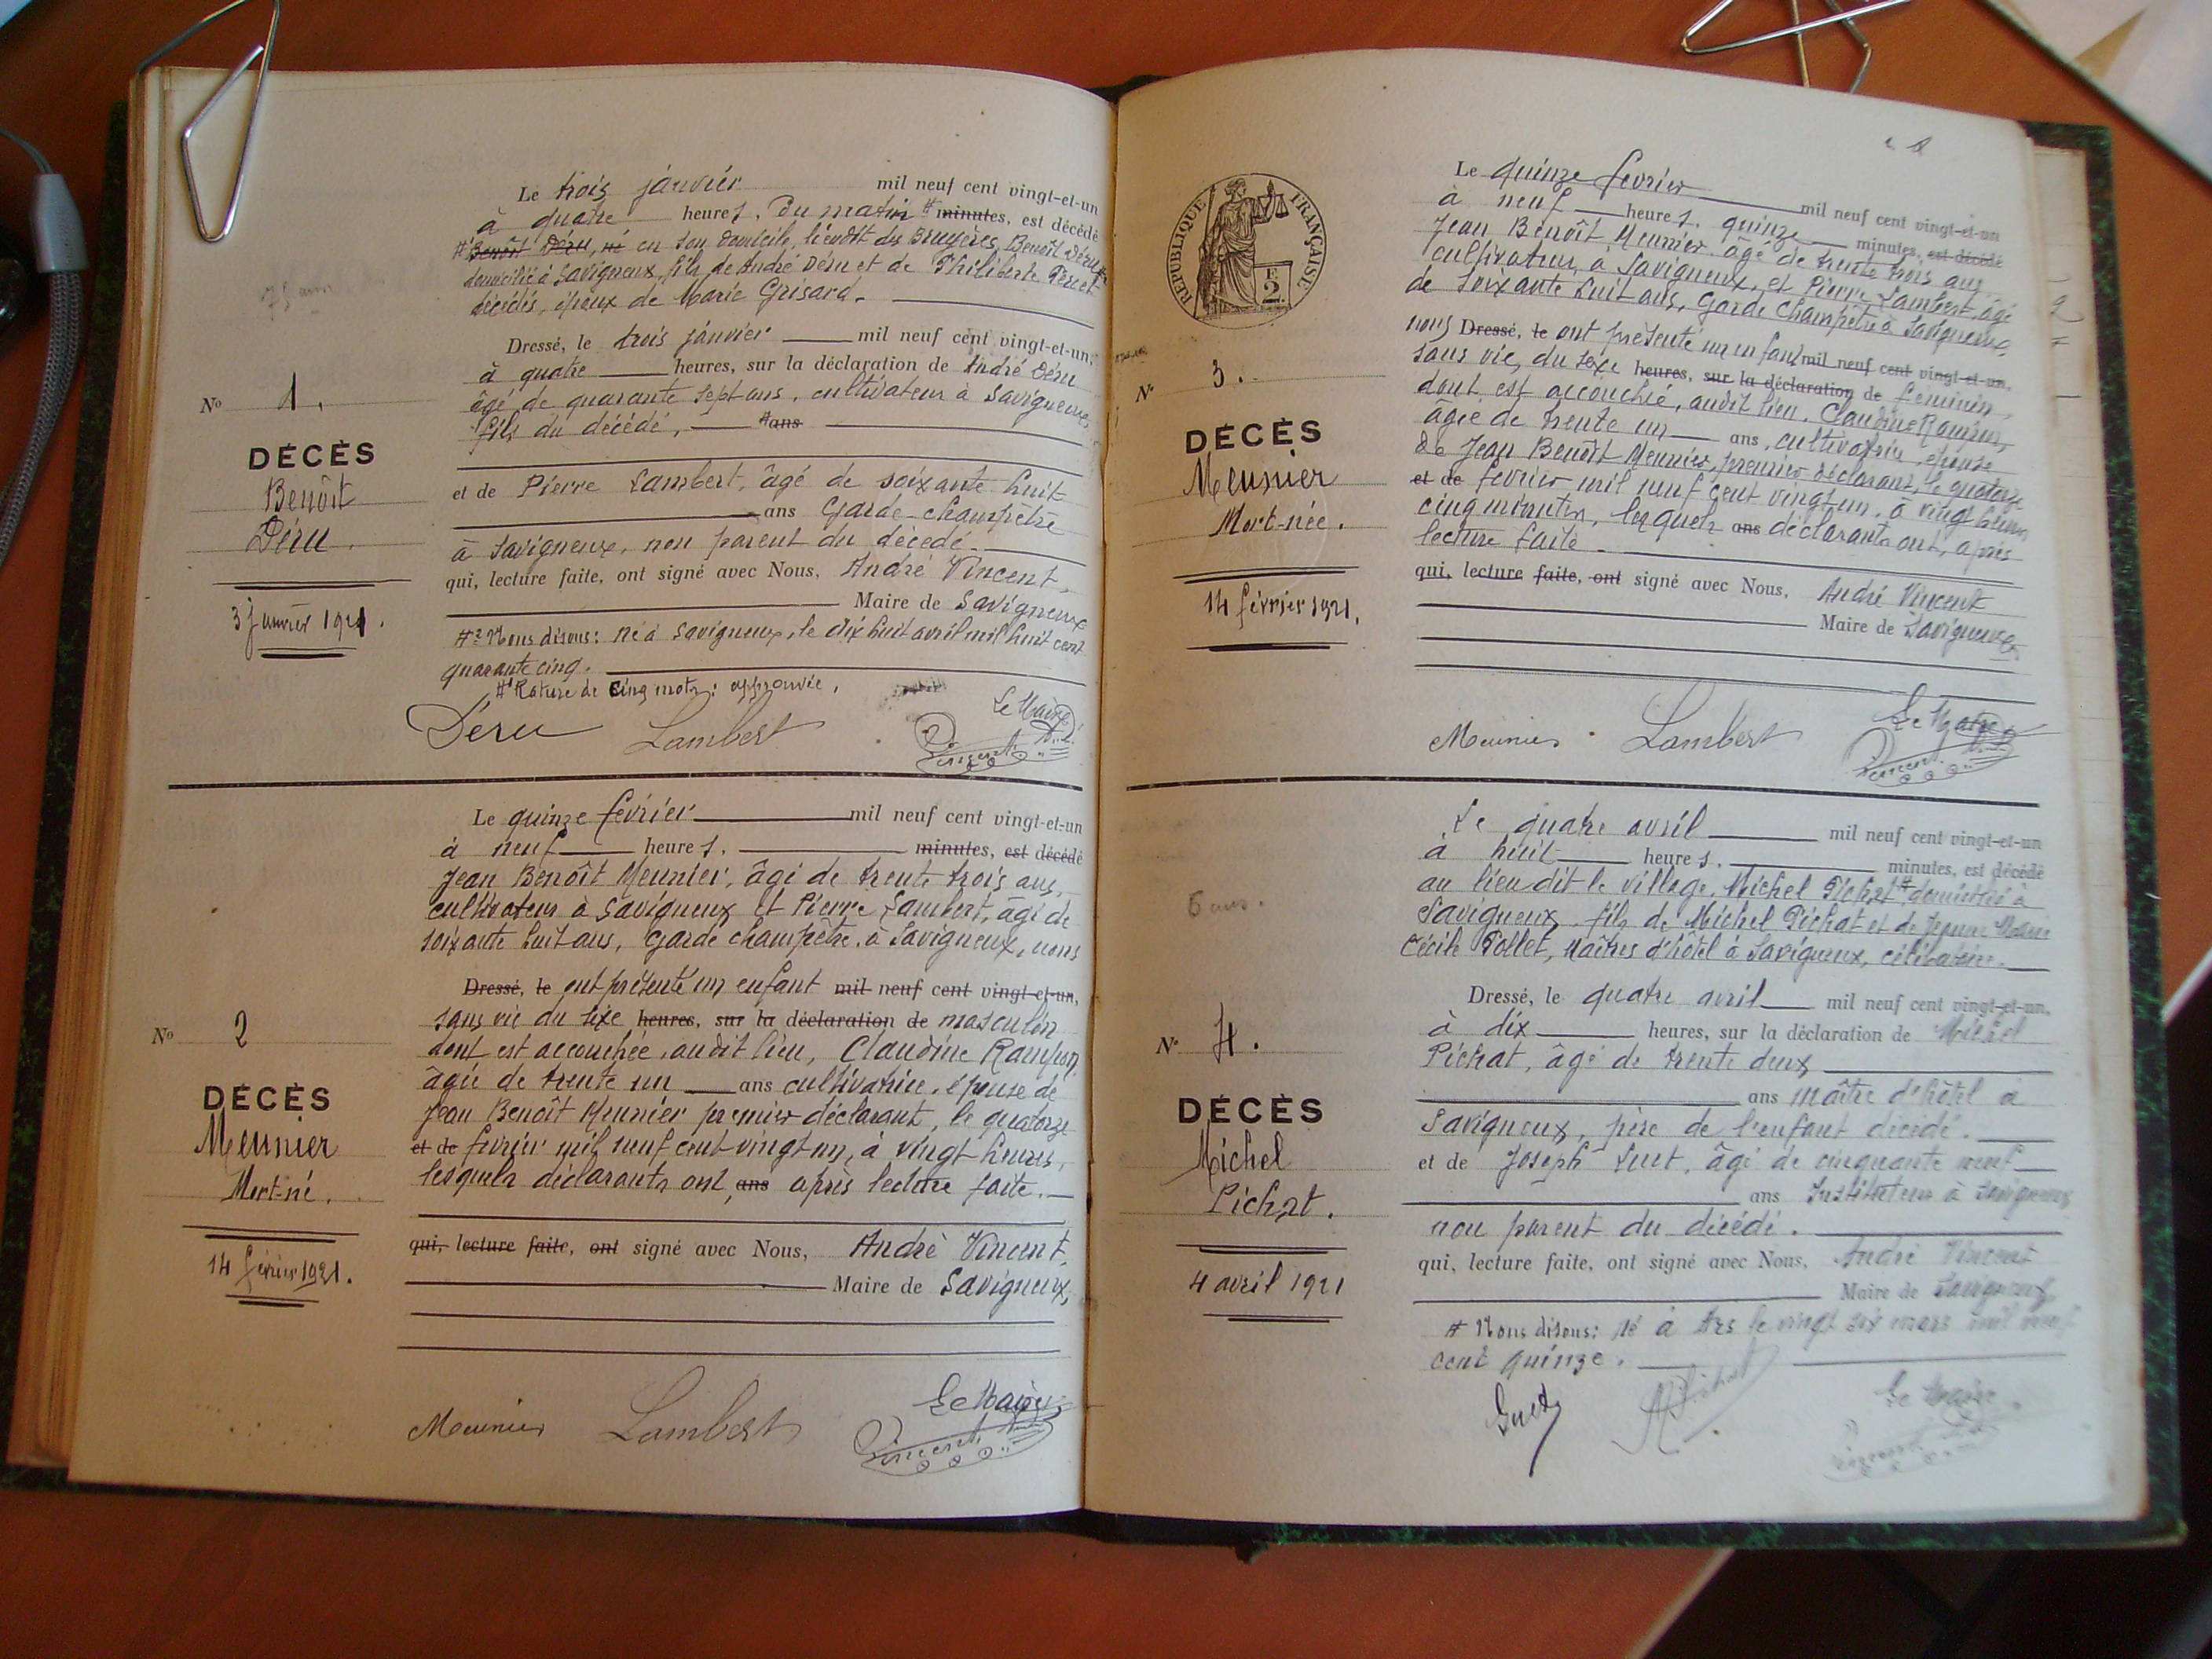 75 ans
Le trois janvier mil neuf cent vingt-et-un
à quatre heures, du matin # minutes, est décédé
# Benoît Déru, né en son domicile, lieudit des Bruyères, Benoît Déru #
domicilié à Savigneux, fils de André Déru et de Philiberte
décédés, époux de Marie Grisard.
Dressé, le trois janvier mil neuf cent vingt-et-un,
à quatre heures, sur la déclaration de André Déru
âgé de quarante sept ans, cultivateur à Savigneux,
fils du décédé, ans
et de Pierre Lambert, âgé de soixante huit
ans Garde-champêtre
à Savigneux, non parent du décédé.
qui, lecture faite, ont signé avec Nous, André Vincent,
Maire de Savigneux
#2 Nous disons: né à Savigneux, le dix huit avril mil huit cent
quarante cinq.
#1 Rature de cinq mots: approuvée,
Déru Lambert Le Maire
Vincent
No 1.
DÉCÈS
Benoît
Déru.
3 Janvier 1921.
Le quinze février mil neuf cent vingt-et-un
à neuf heures, minutes, est décédé
Jean Benoît Meunier, âgé de trente trois ans,
cultivateur à Savigneux et Pierre Lambert, âgé de
soixante huit ans, Garde champêtre, à Savigneux, nous
Dressé, le ont présenté un enfant mil neuf cent vingt-et-un,
sans vie du sexe heures, sur la déclaration de masculin
dont est accouchée, audit lieu, Claudine Rampon,
âgée de trente un ans cultivatrice, épouse de
Jean Benoît Meunier premier déclarant, le quatorze
et de février mil neuf cent vingt un, à vingt heures,
lesquels déclarants ont, ans après lecture faite.
qui, lecture faite, ont signé avec Nous, André Vincent,
Maire de Savigneux,
Meunier Lambert Le Maire
Vincent
No 2
DÉCÈS
Meunier
Mort-né.
14 février 1921.
RÉPUBLIQUE FRANÇAISE
E
2
Le quinze février mil neuf cent vingt-et-un
à neuf heures. quinze minutes, est décédé
Jean Benoît Meunier âgé de trente trois ans
cultivateur, à Savigneux, et Pierre Lambert, âgé
de soixante huit ans, Garde Champêtre à Savigneux,
nous Dressé, le ont présenté un enfant mil neuf cent vingt-et-un,
sans vie, du sexe heures, sur la déclaration de féminin,
dont est accouchée, audit lieu, Claudine Rampon,
âgée de trente un ans, cultivatrice, épouse
de Jean Benoît Meunier, premier déclarant, le quatorze
et de février mil neuf cent vingt un, à vingt heures
cinq minutes, lesquels ans déclarants ont, après
lecture faite.
qui, lecture faite, ont signé avec Nous, André Vincent
Maire de Savigneux
Meunier Lambert Le Maire
Vincent
No 3.
DÉCÈS
Meunier
Mort-née.
14 février 1921.
6 ans.
Le quatre avril mil neuf cent vingt-et-un
à huit heures. minutes, est décédé
au lieu dit le village, Michel Pichat # domicilié à
Savigneux, fils de Michel Pichat et de Jeanne Marie
Cécile Pollet, Maîtres d'hôtel à Savigneux, célibataire.
Dressé, le quatre avril mil neuf cent vingt-et-un,
à dix heures, sur la déclaration de Michel
Pichat, âgé de trente deux
ans maître d'hôtel à
Savigneux, père de l'enfant décédé.
et de Joseph Luet, âgé de cinquante neuf
ans Instituteur à Savigneux
non parent du décédé.
qui, lecture faite, ont signé avec Nous, André Vincent
Maire de Savigneux
# Nous disons: né à Ars le vingt six mars mil neuf
cent quinze.
Luet Pichat Le Maire
Vincent
No 4.
DÉCÈS
Michel
Pichat.
4 avril 1921